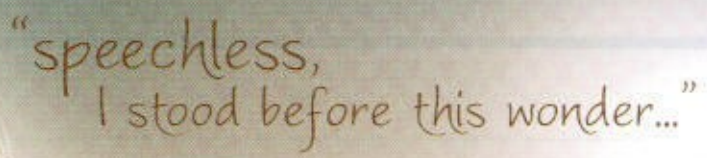 “speechless,
I stood before this wonder...”